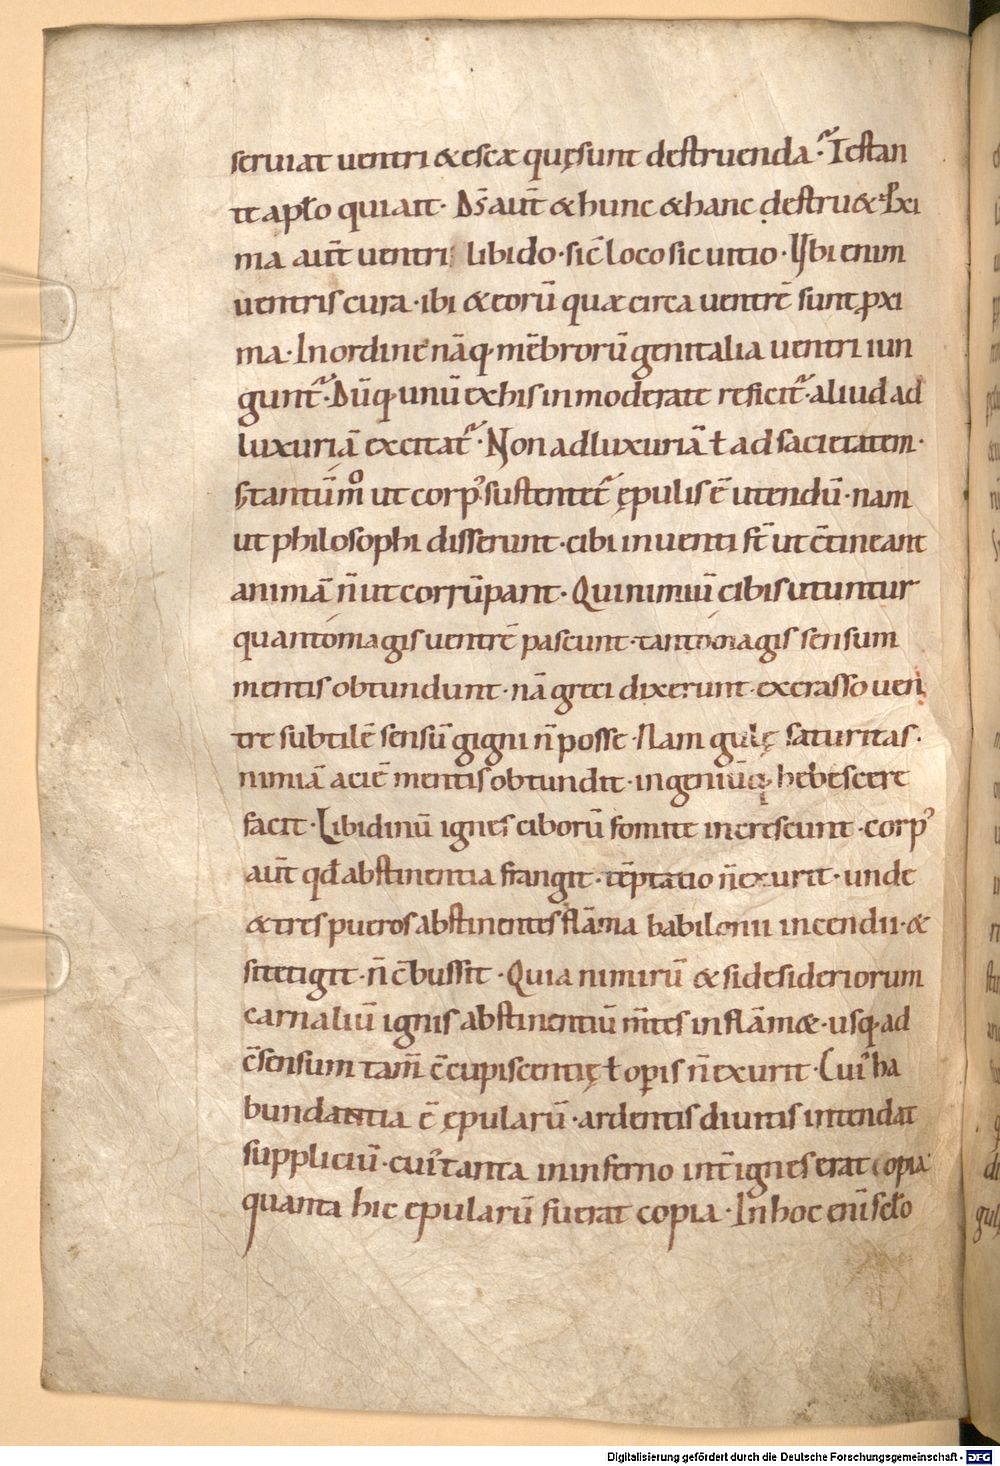 seruiat uentri & escæ quęsunt destruenda. Testan
te aplo qui ait. D̄s aut̄ & hunc & hanc destru&. Pxi
ma aut̄ uentri libido. sic̄ loco sic uitio. Vbi enim
uentris cura. ibi & eorū quæ circa uentrē sunt ꝓxi
ma. In ordine nāq; mēbrorū genitalia uentri iun
gunt̄. Dūq; unū ex his inmoderate reficit̄. aliud ad
luxuriā excitat̄. Non ad luxuriā ł ad sacietatem.
s; tantūm̊ ut corp᾽ sustentet̄ ępulis ē utendū. nam
ut philosophi disserunt. cibi inuenti st̄ ut c̄tineant
animā n̄ ut corrūpant. Qui nimiū cibis utuntur
quanto magis uentrē pascunt. tanto magis sensum
mentis obtundunt. nā greci dixerunt. ex crasso uen
tre subtilē sensū gigni n̄ posse. Nam gulę saturitas.
nimiā aciē mentis obtundit. ingeniūq; hebescere
facit. Libidinū ignes ciborū fomite increscunt. corp᾽
aut̄ qđ abstinentia frangit. tēptatio n̄ exurit. unde
& tres pueros abstinentes flāma babilonii incendii. &
si tetigit. n̄ c̄bussit. Quia nimirū & si desideriorum
carnaliū ignis abstinentiū m̄tes inflām&. usq; ad
c̄sensum tam̄ c̄cupiscentię ł opis n̄ exurit. Cui᾽ ha
bundantia ē ępularū. ardentis diuitis intendat
suppliciū. cui᾽ tanta in inferno int̄ ignes erat copia
quanta hic epularū fuerat copia. In hoc enī scło
Digitalisierung gefördert durch die Deutsche Forschungsgemeinschaft - DFG